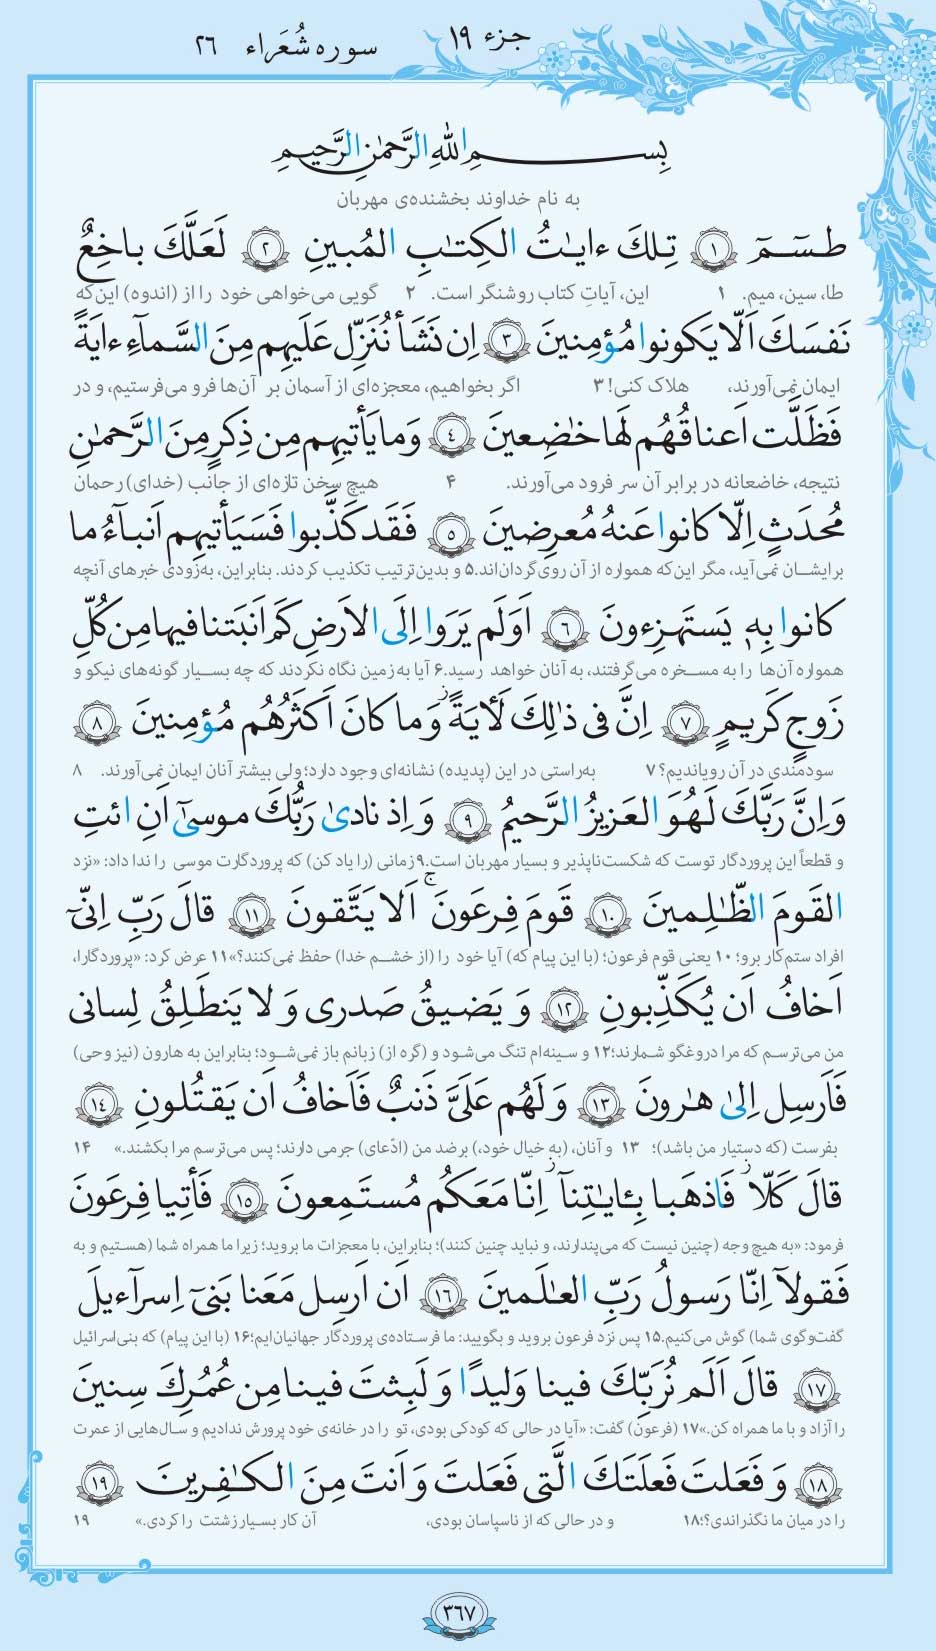 جزء ١٩
سوره شُعَراء ٢٦
بِسمِ اللهِ الرَّحمٰنِ الرَّحیمِ
به نام خداوند بخشنده‌ی مهربان
طسٓمٓ ١ تِلكَ ءایٰتُ الكِتٰبِ المُبینِ ٢ لَعَلَّكَ باخِعٌ
طا، سین، میم. ۱ این، آیاتِ کتاب روشنگر است. ۲ گویی می‌خواهی خود را از (اندوه) این‌که
نَفسَكَ اَلّا یَكونوا مُؤمِنینَ ٣ اِن نَشَأ نُنَزِّل عَلَیهِم مِنَ السَّماءِ ءایَةً
ایمان نمی‌آورند، هلاک کنی! ۳ اگر بخواهیم، معجزه‌ای از آسمان بر آن‌ها فرو می‌فرستیم، و در
فَظَلَّت اَعناقُهُم لَها خٰضِعینَ ٤ وَ ما یَأتیهِم مِن ذِكرٍ مِنَ الرَّحمٰنِ
نتیجه، خاضعانه در برابر آن سر فرود می‌آورند. ۴ هیچ سخن تازه‌ای از جانب (خدای) رحمان
مُحدَثٍ اِلّا كانوا عَنهُ مُعرِضینَ ٥ فَقَد كَذَّبوا فَسَیَأتیهِم اَنبٰٓؤُا ما
برایشان نمی‌آید، مگر این‌که همواره از آن روی‌گردان‌اند.۵ و بدین‌ترتیب تکذیب کردند. بنابراین، به‌زودی خبرهای آنچه
كانوا بِهٖ یَستَهزِءونَ ٦ اَوَلَم یَرَوا اِلَی الاَرضِ كَم اَنبَتنا فیها مِن كُلِّ
همواره آن‌ها را به مسخره می‌گرفتند، به آنان خواهد رسید.۶ آیا به‌زمین نگاه نکردند که چه بسیار گونه‌های نیکو و
زَوجٍ كَریمٍ ٧ اِنَّ فی ذٰلِكَ لَأٓیَةً ز وَ ما كانَ اَكثَرُهُم مُؤمِنینَ ٨
سودمندی در آن رویاندیم؟ ۷ به‌راستی در این (پدیده) نشانه‌ای وجود دارد؛ ولی بیشتر آنان ایمان نمی‌آورند. ۸
وَ اِنَّ رَبَّكَ لَهُوَ العَزیزُ الرَّحیمُ ٩ وَ اِذ نادیٰ رَبُّكَ موسیٰٓ اَنِ ائتِ
و قطعاً این پروردگار توست که شکست‌ناپذیر و بسیار مهربان است.۹ زمانی (را یاد کن) که پروردگارت موسی را ندا داد: «نزد
القَومَ الظّٰلِمینَ ١٠ قَومَ فِرعَونَ ج اَلا یَتَّقونَ ١١ قالَ رَبِّ اِنّیٓ
افراد ستم‌کار برو؛ ۱۰ یعنی قوم فرعون؛ (با این پیام که) آیا خود را (از خشم خدا) حفظ نمی‌کنند؟»۱۱ عرض کرد: «پروردگارا،
اَخافُ اَن یُكَذِّبونِ ١٢ وَ یَضیقُ صَدری وَ لا یَنطَلِقُ لِسانی
من می‌ترسم که مرا دروغگو شمارند؛۱۲ و سینه‌ام تنگ می‌شود و (گره از) زبانم باز نمی‌شود؛ بنابراین به هارون (نیز وحی)
فَاَرسِل اِلیٰ هٰرونَ ١٣ وَ لَهُم عَلَیَّ ذَنبٌ فَاَخافُ اَن یَقتُلونِ ١٤
بفرست (که دستیار من باشد)؛ ۱۳ و آنان، (به خیال خود،) برضد من (ادّعای) جرمی دارند؛ پس می‌ترسم مرا بکشند.» ۱۴
قالَ كَلّا ز فَاذهَبا بِـٔایٰتِنآ ز اِنّا مَعَكُم مُستَمِعونَ ١٥ فَأتِیا فِرعَونَ
فرمود: «به هیچ وجه (چنین نیست که می‌پندارند، و نباید چنین کنند)؛ بنابراین، با معجزات ما بروید؛ زیرا ما همراه شما (هستیم و به
فَقولآ اِنّا رَسولُ رَبِّ العٰلَمینَ ١٦ اَن اَرسِل مَعَنا بَنیٓ اِسرآءیلَ
گفت‌وگوی شما) گوش می‌کنیم.۱۵ پس نزد فرعون بروید و بگویید: ما فرستاده‌ی پروردگار جهانیان‌ایم؛۱۶ (با این پیام) که بنی‌اسرائیل
١٧ قالَ اَلَم نُرَبِّكَ فینا وَلیدًا وَ لَبِثتَ فینا مِن عُمُرِكَ سِنینَ
را آزاد و با ما همراه کن.»۱۷ (فرعون) گفت: «آیا در حالی که کودکی بودی، تو را در خانه‌ی خود پرورش ندادیم و سال‌هایی از عمرت
١٨ وَ فَعَلتَ فَعلَتَكَ الَّتی فَعَلتَ وَ اَنتَ مِنَ الكٰفِرینَ ١٩
را در میان ما نگذراندی؟؛۱۸ و در حالی که از ناسپاسان بودی، آن کار بسیار زشتت را کردی.» ۱۹
٣٦٧